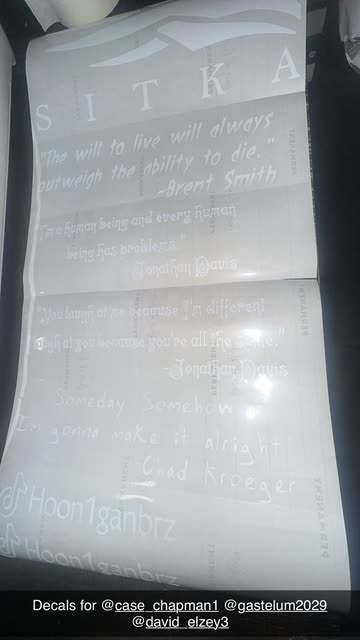 SITKA
"The will to live will always
outweigh the ability to die."
-Brent Smith
"I'm a human being and every human
being has problems"
-Jonathan Davis
"You laugh at me because I'm different
laugh at you because you're all the same."
-Jonathan Davis
Someday Somehow
I'm gonna make it alright
Chad Kroeger
Hoon1ganbrz
Hoon1ganbrz
PERMANENT
Decals for @case_chapman1 @gastelum2029
@david_elzey3